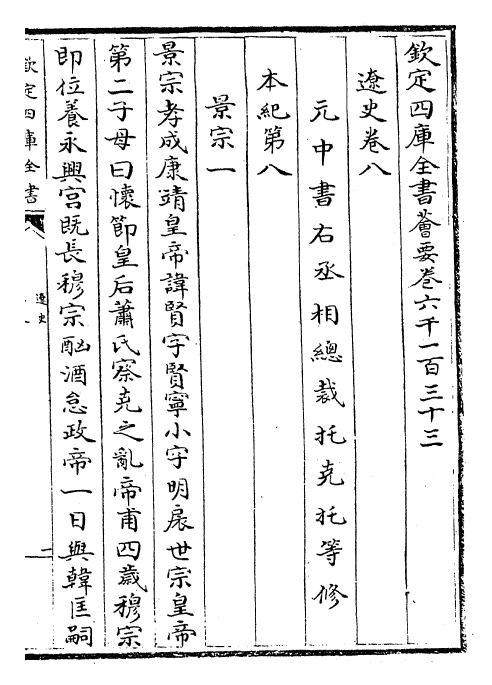 欽定四庫全書薈要卷六千一百三十三
遼史卷八
元中書右丞相總裁托克托等修
本紀第八
景宗一
景宗孝成康靖皇帝諱賢字賢寧小字明扆世宗皇帝
第二子母曰懷節皇后蕭氏察克之亂帝甫四歲穆宗
即位養永興宮既長穆宗酗酒怠政帝一日與韓匡嗣
欽定四庫全書
遼史